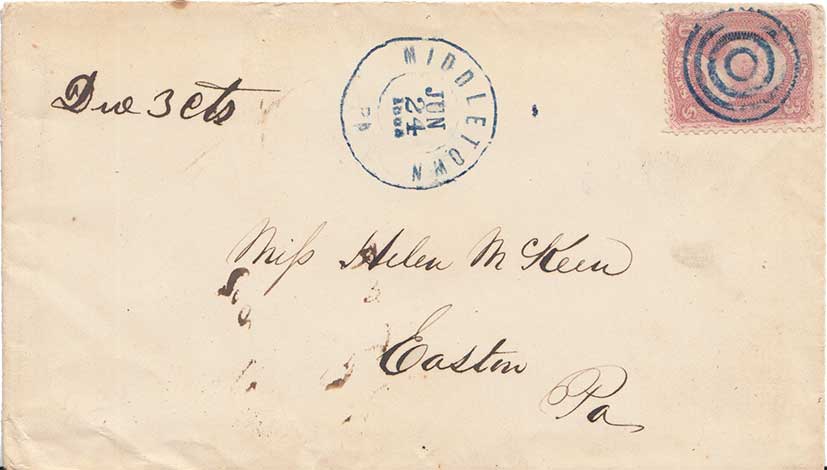 Due 3 cts
MIDDLETOWN
JUN
24
Pa
Miſs Helen McKeen
Easton
Pa